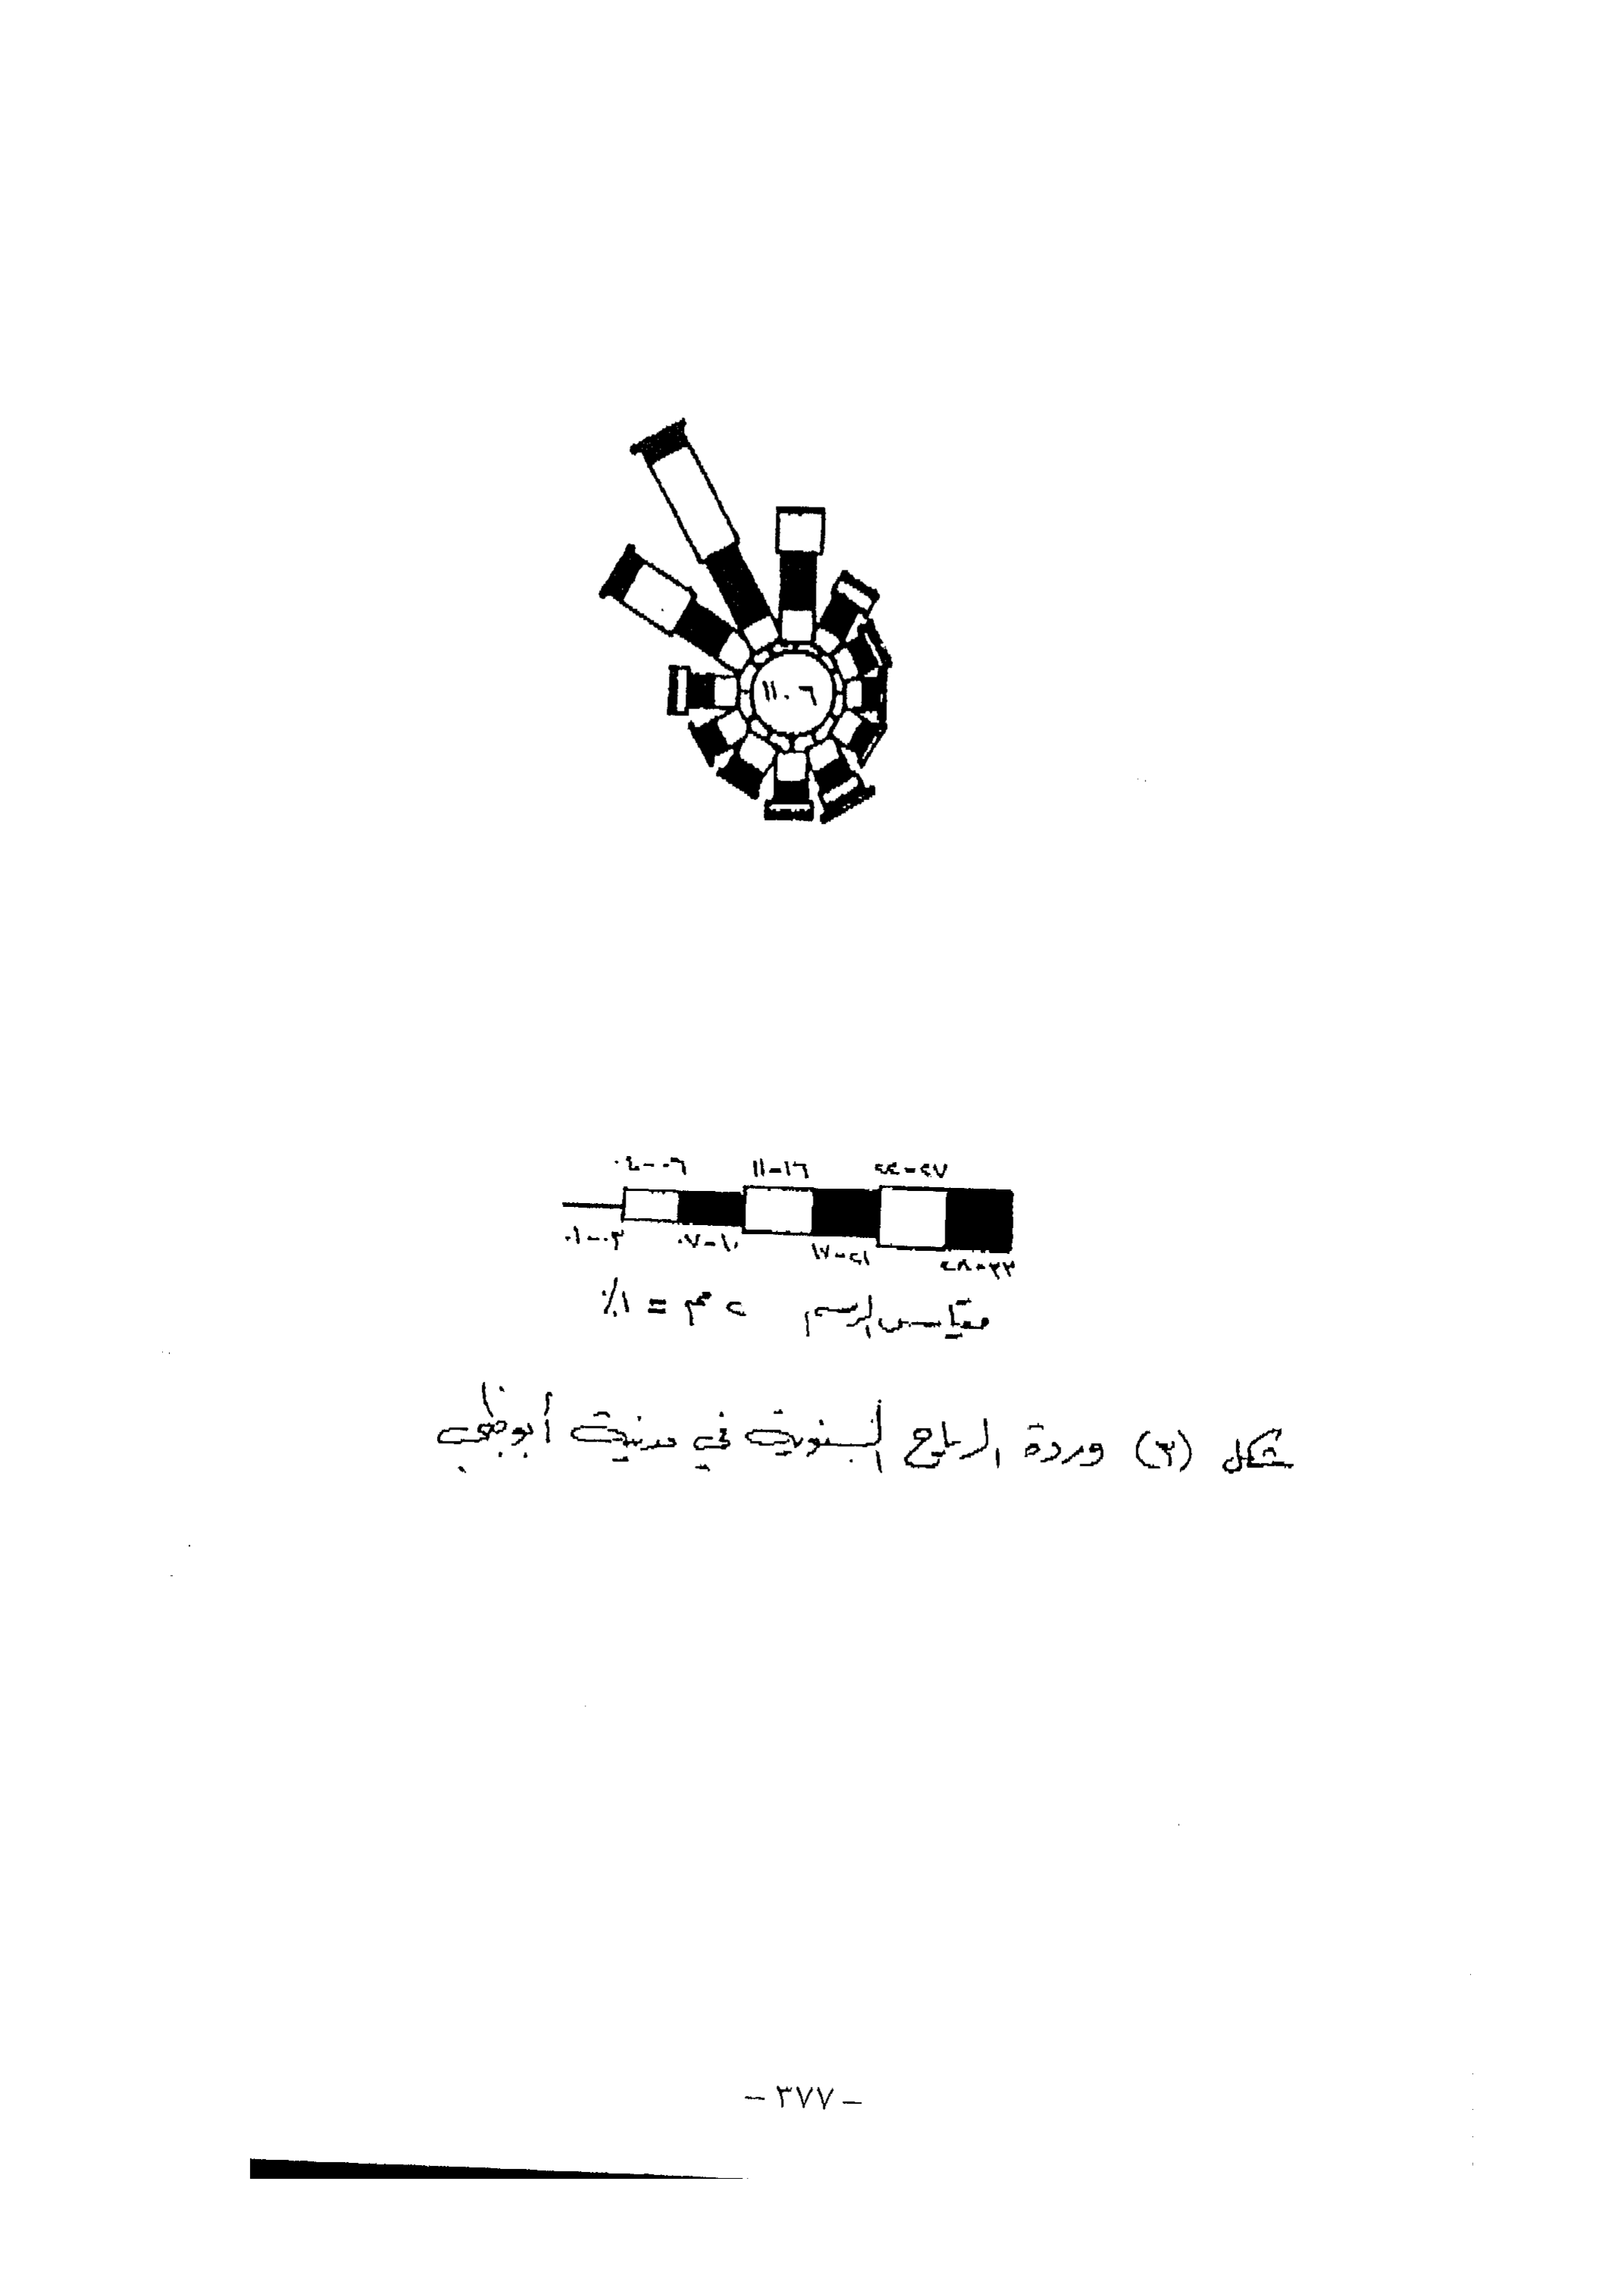 ١١.٦
٠٤-٠٦ ١١-١٦ ٢٢-٢٧
٠١-٠٣ ٠٧-١٠ ١٧-٢١ ٢٨-٣٣
مقياس الرسم ٢ مم = ١٪
شكل (٣) وردة الرياح السنوية في مدينة أبوظبي
- ٣٧٧ -